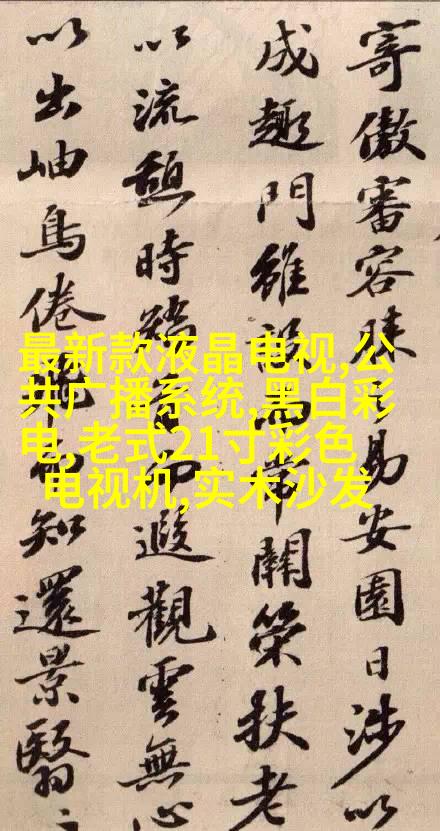 寄傲審容膝易安園日涉以
成趣門雖設而常關策扶老
以流憩時矯而遐觀雲無心
以出岫鳥倦飛而知還景翳
最新款液晶电视,公
共广播系统,黑白彩
电,老式21寸彩色
电视机,实木沙发